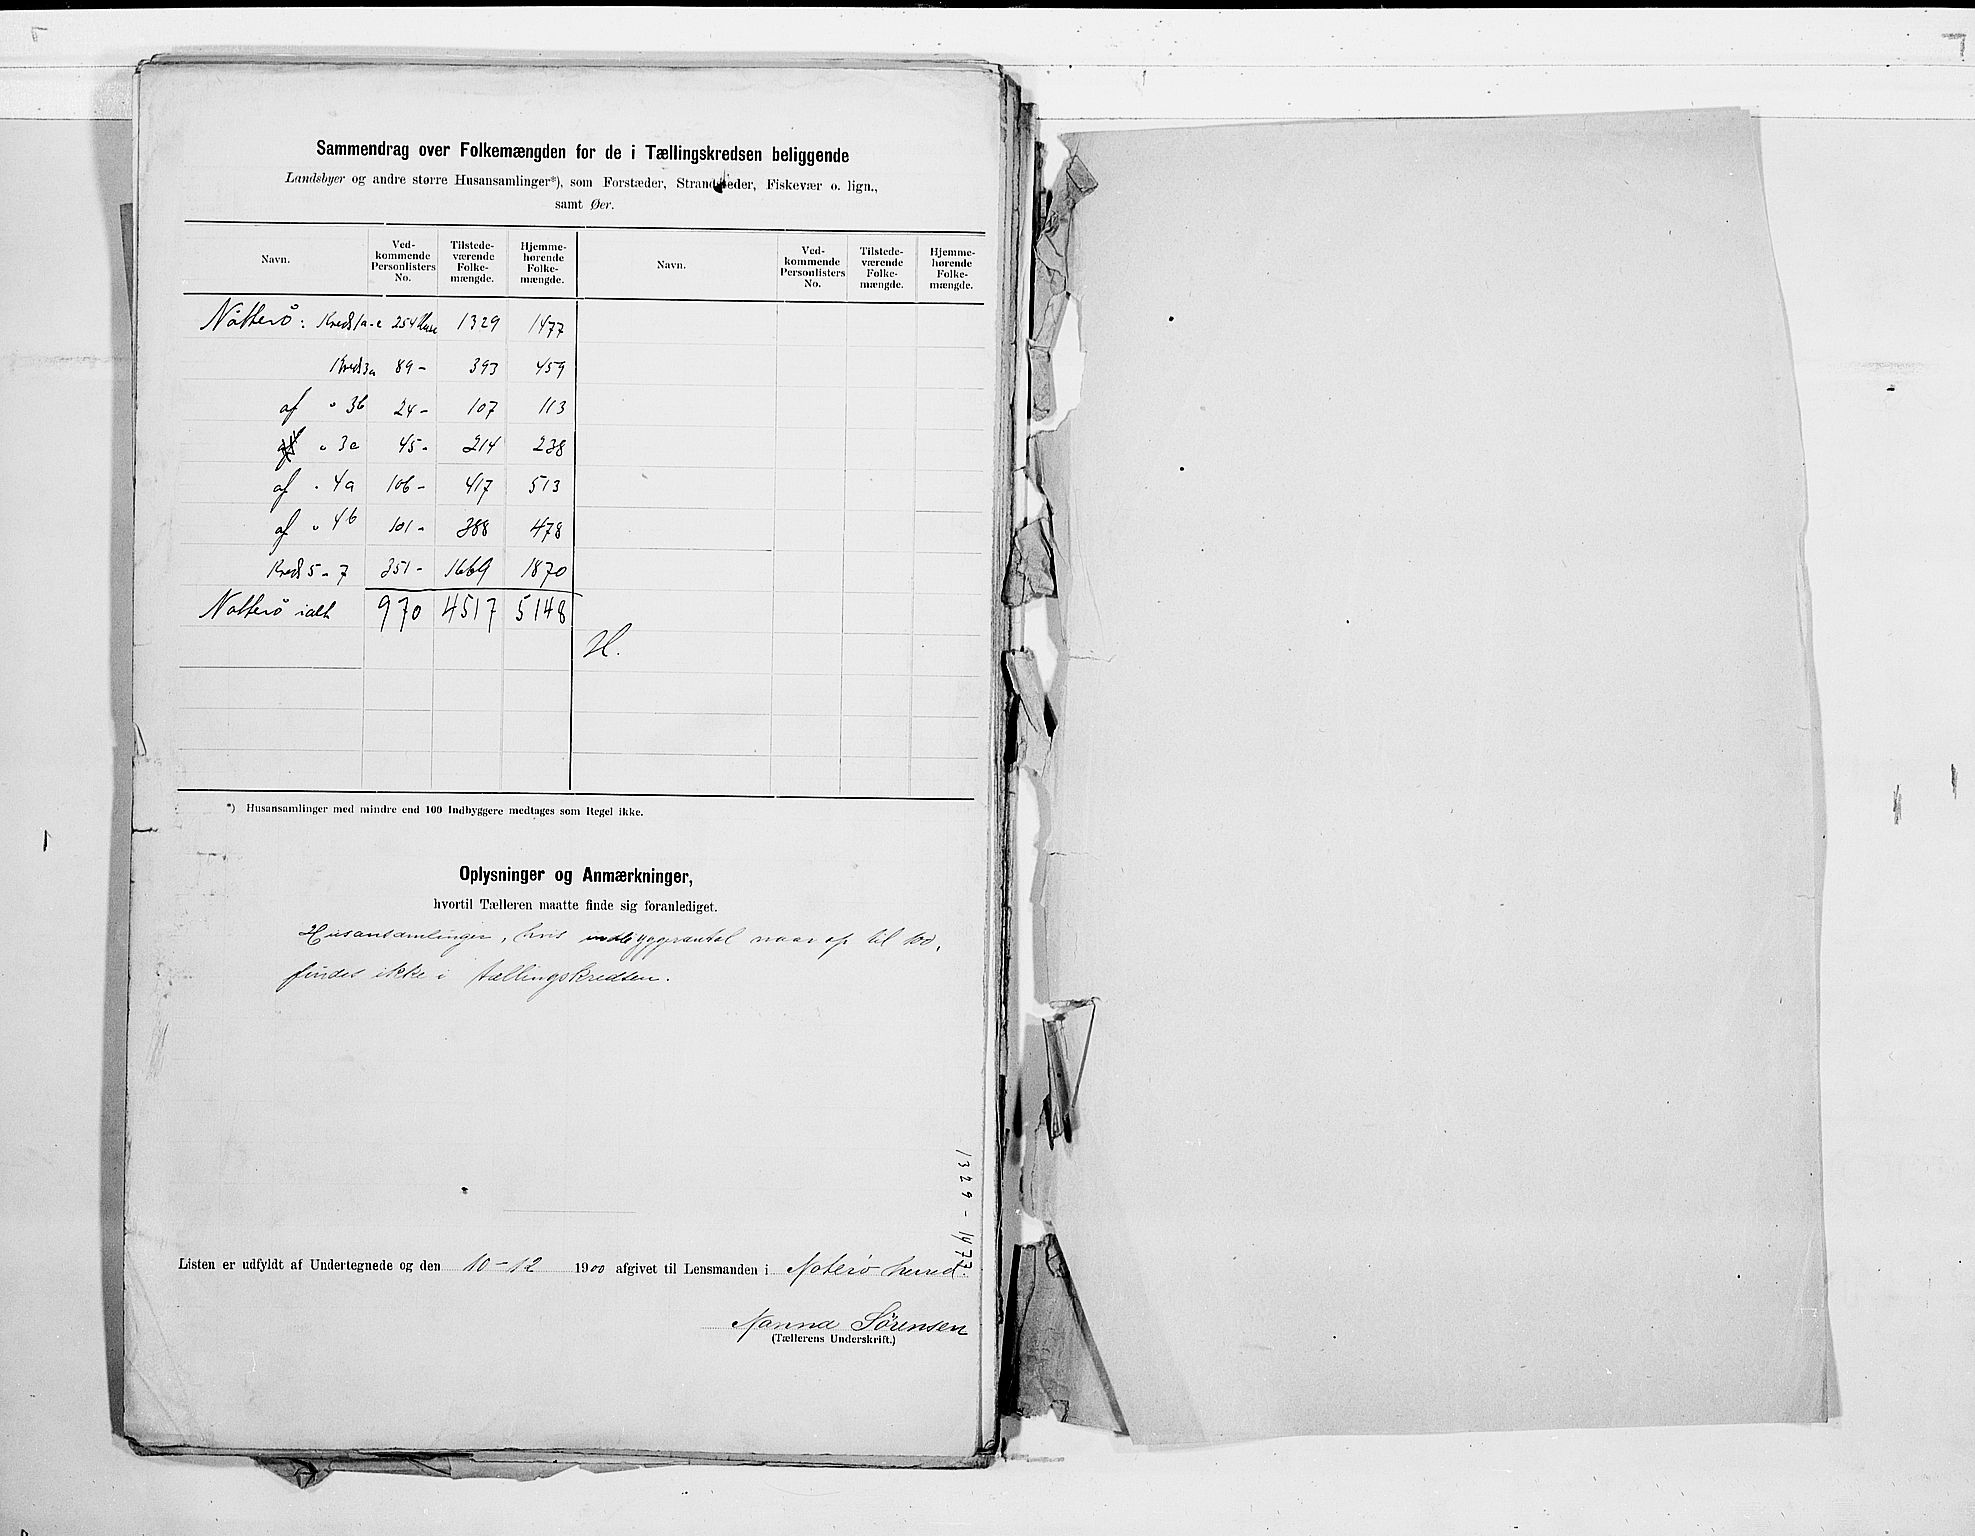 Sammendrag over Folkemængden for de i Tællingskredsen beliggende
Landsbyer og andre større Husansamlinger*), som Forstæder, Strandsteder, Fiskevær o. lign.,
samt Øer.
Navn. Ved-kommende Personlisters No. Tilstede-værende Folke-mængde. Hjemme-hørende Folke-mængde. Navn. Ved-kommende Personlisters No. Tilstede-værende Folke-mængde. Hjemme-hørende Folke-mængde.
Nötterö: Kreds 1a-c 254 Huse 1329 1477
Kreds 3a 89 - 393 459
af " 3b 24 - 107 113
" 3c 45 - 214 238
af " 4a 106 - 417 513
af " 4b 101 - 388 478
Kreds 5 - 7 351 - 1669 1870
Nötterö ialt 970 4517 5148
H.
*) Husansamlinger med mindre end 100 Indbyggere medtages som Regel ikke.
Oplysninger og Anmærkninger,
hvortil Tælleren maatte finde sig foranlediget.
Husansamlinger, hvis indbyggerantal naar op til 100,
findes ikke i tællingskredsen.
1329 - 1477
Listen er udfyldt af Undertegnede og den 10 - 12 1900 afgivet til Lensmanden i Noterø herred.
Nanna Sørensen
(Tællerens Underskrift.)